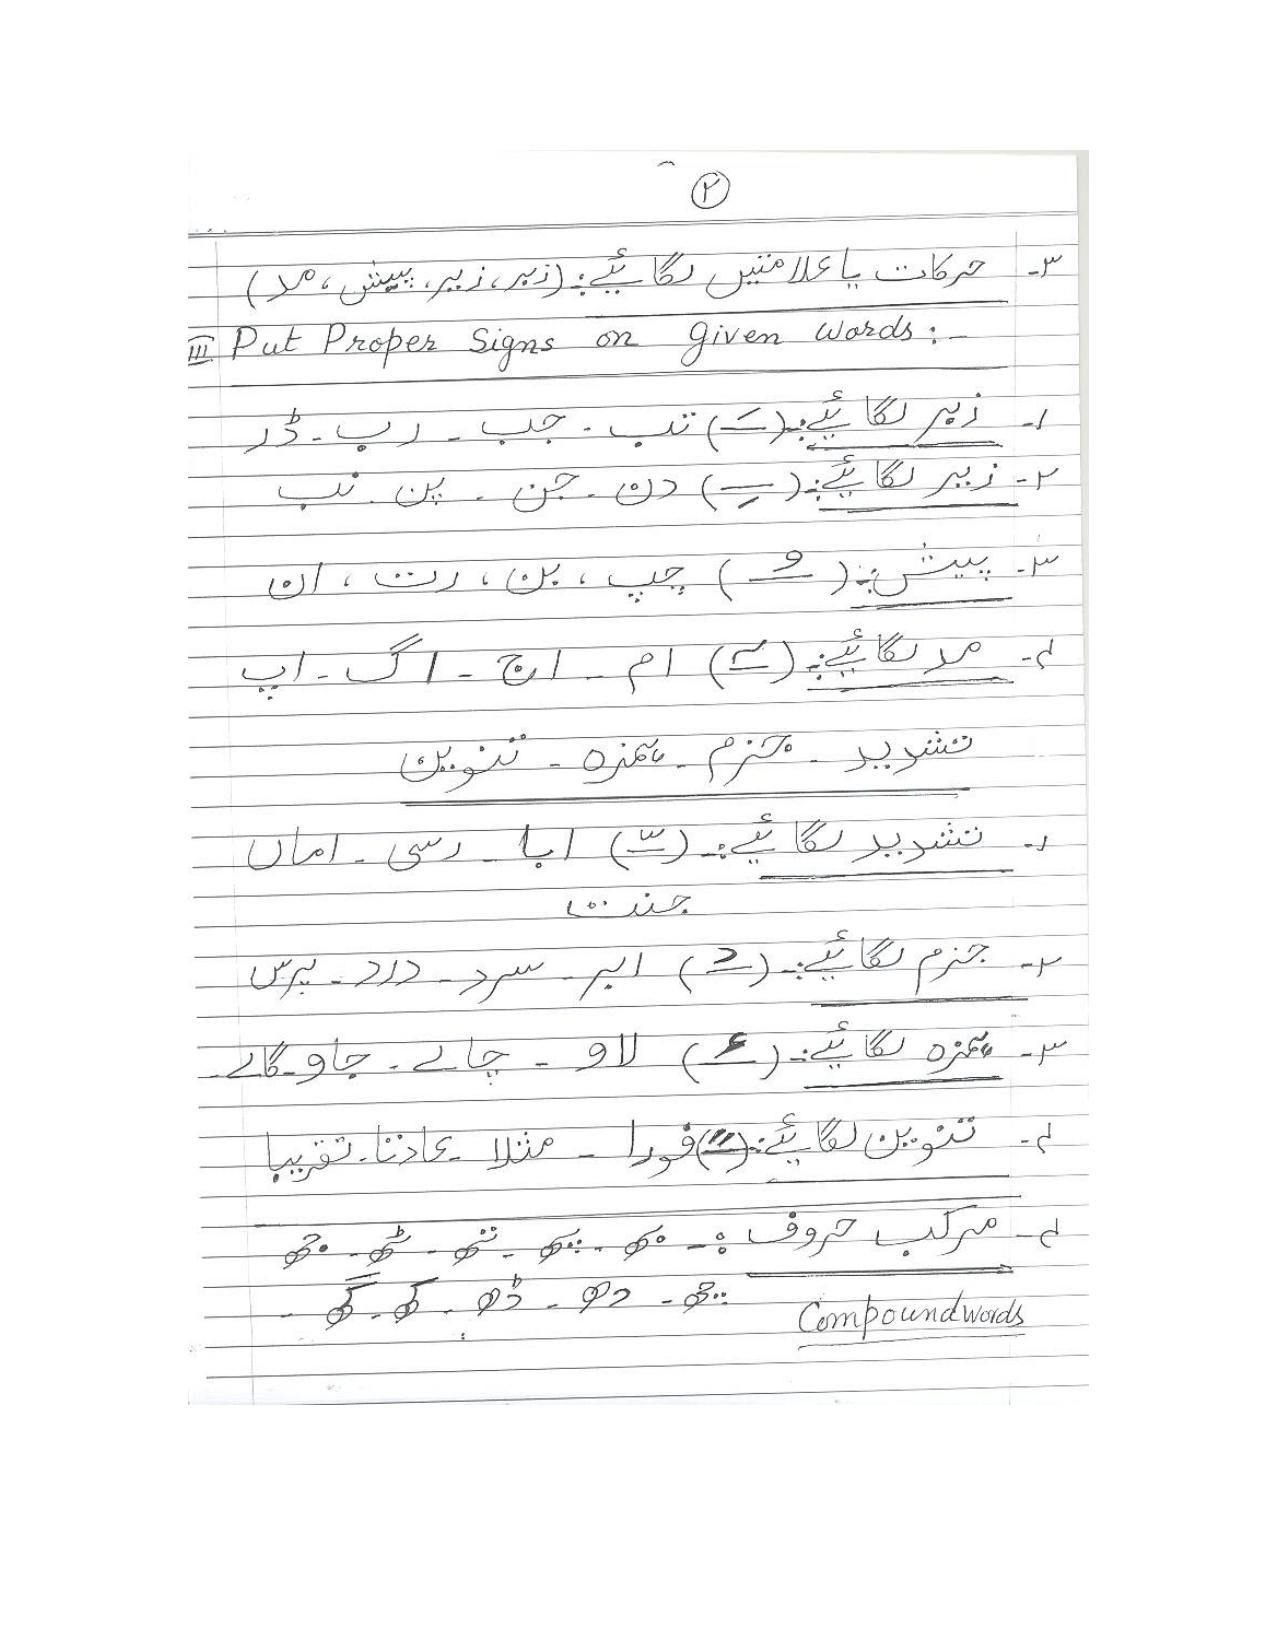 ۲
۳- حرکات یا علامتیں لگائیے:۔ (زبر، زیر، پیش، مد)
III Put Proper Signs on given words:-
۱- زبر لگائیے:۔ (ــَـ) تب - جب - رب - ڈر
۲- زیر لگائیے:۔ (ــِـ) دن - جن - پن - نب
۳- پیش:۔ (ــُـ) چپ ، بن ، رت ، ان
۴- مد لگائیے:۔ (ــٓـ) ام - اج - اگ - اپ
تشدید - جزم - ہمزہ - تنوین
۱- تشدید لگائیے:۔ (ــّـ) ابا - رسی - اماں
جنت
۲- جزم لگائیے:۔ (ــْـ) ابر - سرد - درد - برس
۳- ہمزہ لگائیے:۔ (ء) لاو - چاے - جاو - گاے -
۴- تنوین لگائیے:۔ (ــًـ) فورا - مثلا - عادتا - تقریبا
۴- مرکب حروف :۔ بھ - پھ - تھ - ٹھ - جھ
چھ - دھ - ڈھ - کھ - گھ -
Compoundwords